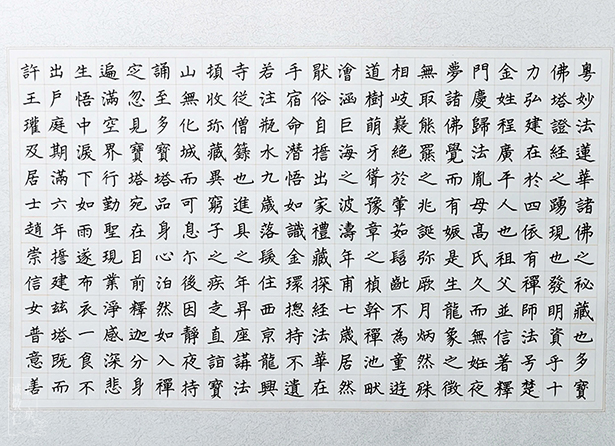 粵妙法蓮華諸佛之秘藏也多寶
佛塔證經之踴現也發明資乎十
力弘建在於四依有禪師法號楚
金姓程廣平人也祖父並信著釋
門慶歸法胤母高氏久而無妊夜
夢諸佛覺而有娠是生龍象之徵
無取熊羆之兆誕弥厥月炳然殊
相岐嶷絕於葷茹髫齔不為童遊
道樹萌牙聳豫章之楨幹禪池畎
澮涵巨海之波濤年甫七歲居然
猒俗自誓出家禮藏探經法華在
手宿命潛悟如識金環揔持不遺
若注瓶水九歲落髮住西京龍興
寺從僧籙也進具之年昇座講法
頓收珎藏異窮子之疾走直詣寶
山無化城而可息尒後因靜夜持
誦至多寶塔品身心泊然如入禪
定忽見寶塔宛在目前釋迦分身
遍滿空界行勤聖現業淨感深悲
生悟中淚下如雨遂布衣一食不
出戶庭期滿六年誓建茲塔既而
許王瓘及居士趙崇信女普意善